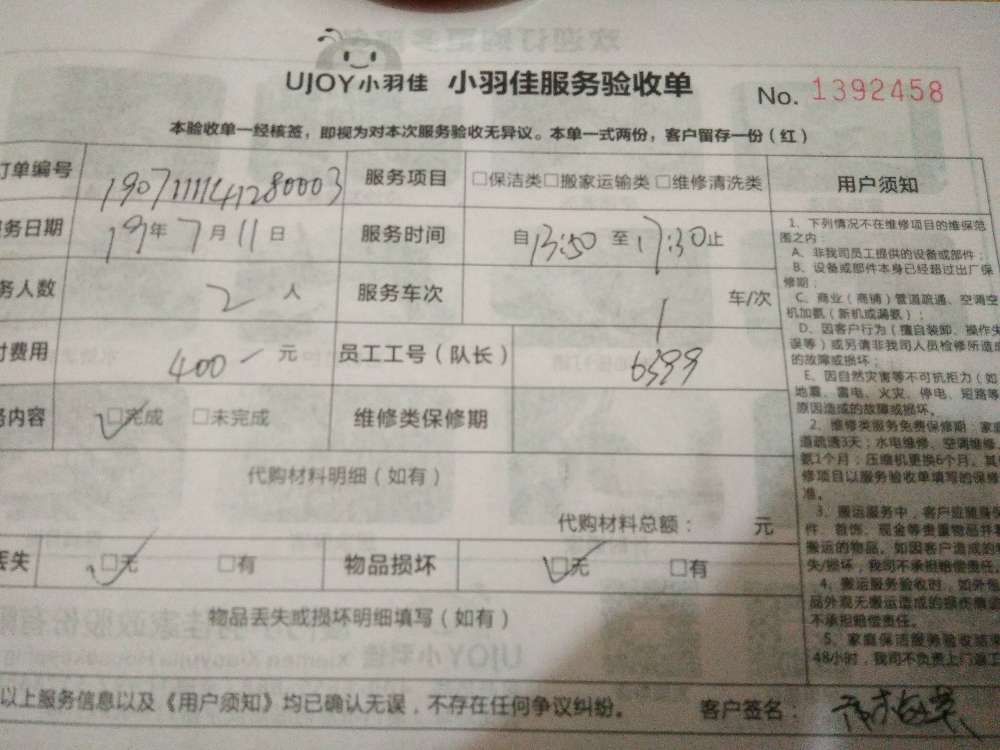 UJOY小羽佳 小羽佳服务验收单 No. 1392458
本验收单一经核签，即视为对本次服务验收无异议。本单一式两份，客户留存一份（红）
订单编号 1907111141280003 服务项目 □保洁类□搬家运输类□维修清洗类 用户须知
服务日期 19年7月11日 服务时间 自13:50至17:30止
务人数 2人 服务车次 1 车/次
付费用 400元 员工工号（队长） 6399
务内容 □完成 □未完成 维修类保修期
代购材料明细（如有）
代购材料总额： 元
丢失 □无 □有 物品损坏 □无 □有
物品丢失或损坏明细填写（如有）
以上服务信息以及《用户须知》均已确认无误，不存在任何争议纠纷。 客户签名：
1、下列情况不在维修项目的维保范
围之内：
A、非我司员工提供的设备或部件；
B、设备或部件本身已经超过出厂保
修期；
C、商业（商铺）管道疏通、空调空
机加氨（新机或漏氨）；
D、因客户行为（擅自装卸、操作失
误等）或另请非我司人员检修所造成
的故障或损坏；
E、因自然灾害等不可抗拒力（如
地震、雷电、火灾、停电、短路等
原因造成的故障或损坏。
2、维修类服务免费保修期：家庭
道疏通3天；水电维修、空调维修、
氨1个月；压缩机更换6个月。其
修项目以服务验收单填写的保修
准。
3、搬运服务中，客户应随身
件、首饰、现金等贵重物品并
搬运的物品。如因客户造成的
失/损坏，我司不承担赔偿责任。
4、搬运服务验收时，如外包
品外观无搬运造成的损伤情况
不承担赔偿责任。
5、家庭保洁服务验收结束
48小时，我司不负责上门返工